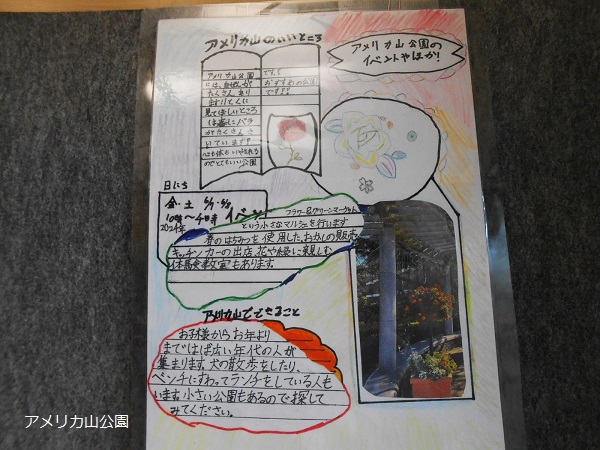 アメリカ山のいいところ
アメリカ山公園
には、自然が
たくさんあり
ます!とくに
見てほしいところ
は春にバラ
がたくさんさ
いています!!
心も体もいやされる
のでとてもいい公園
です。
おすすめの公園
です!!
アメリカ山公園の
イベントやほか!
日にち
金・土
10時〜
2024年
イベント
フラワー&グリーンマーケット
という小さなマルシェを行います
春のはちみつを使用した、おかしの販売
キッチンカーの出店、花や緑に親しむ
体験教室もあります。
アメリカ山でできること
お子様からお年より
まではば広い年代の人が
集まります。犬の散歩をしたり、
ベンチにすわってランチをしている人も
います。小さい公園もあるので探して
みてください。
アメリカ山公園